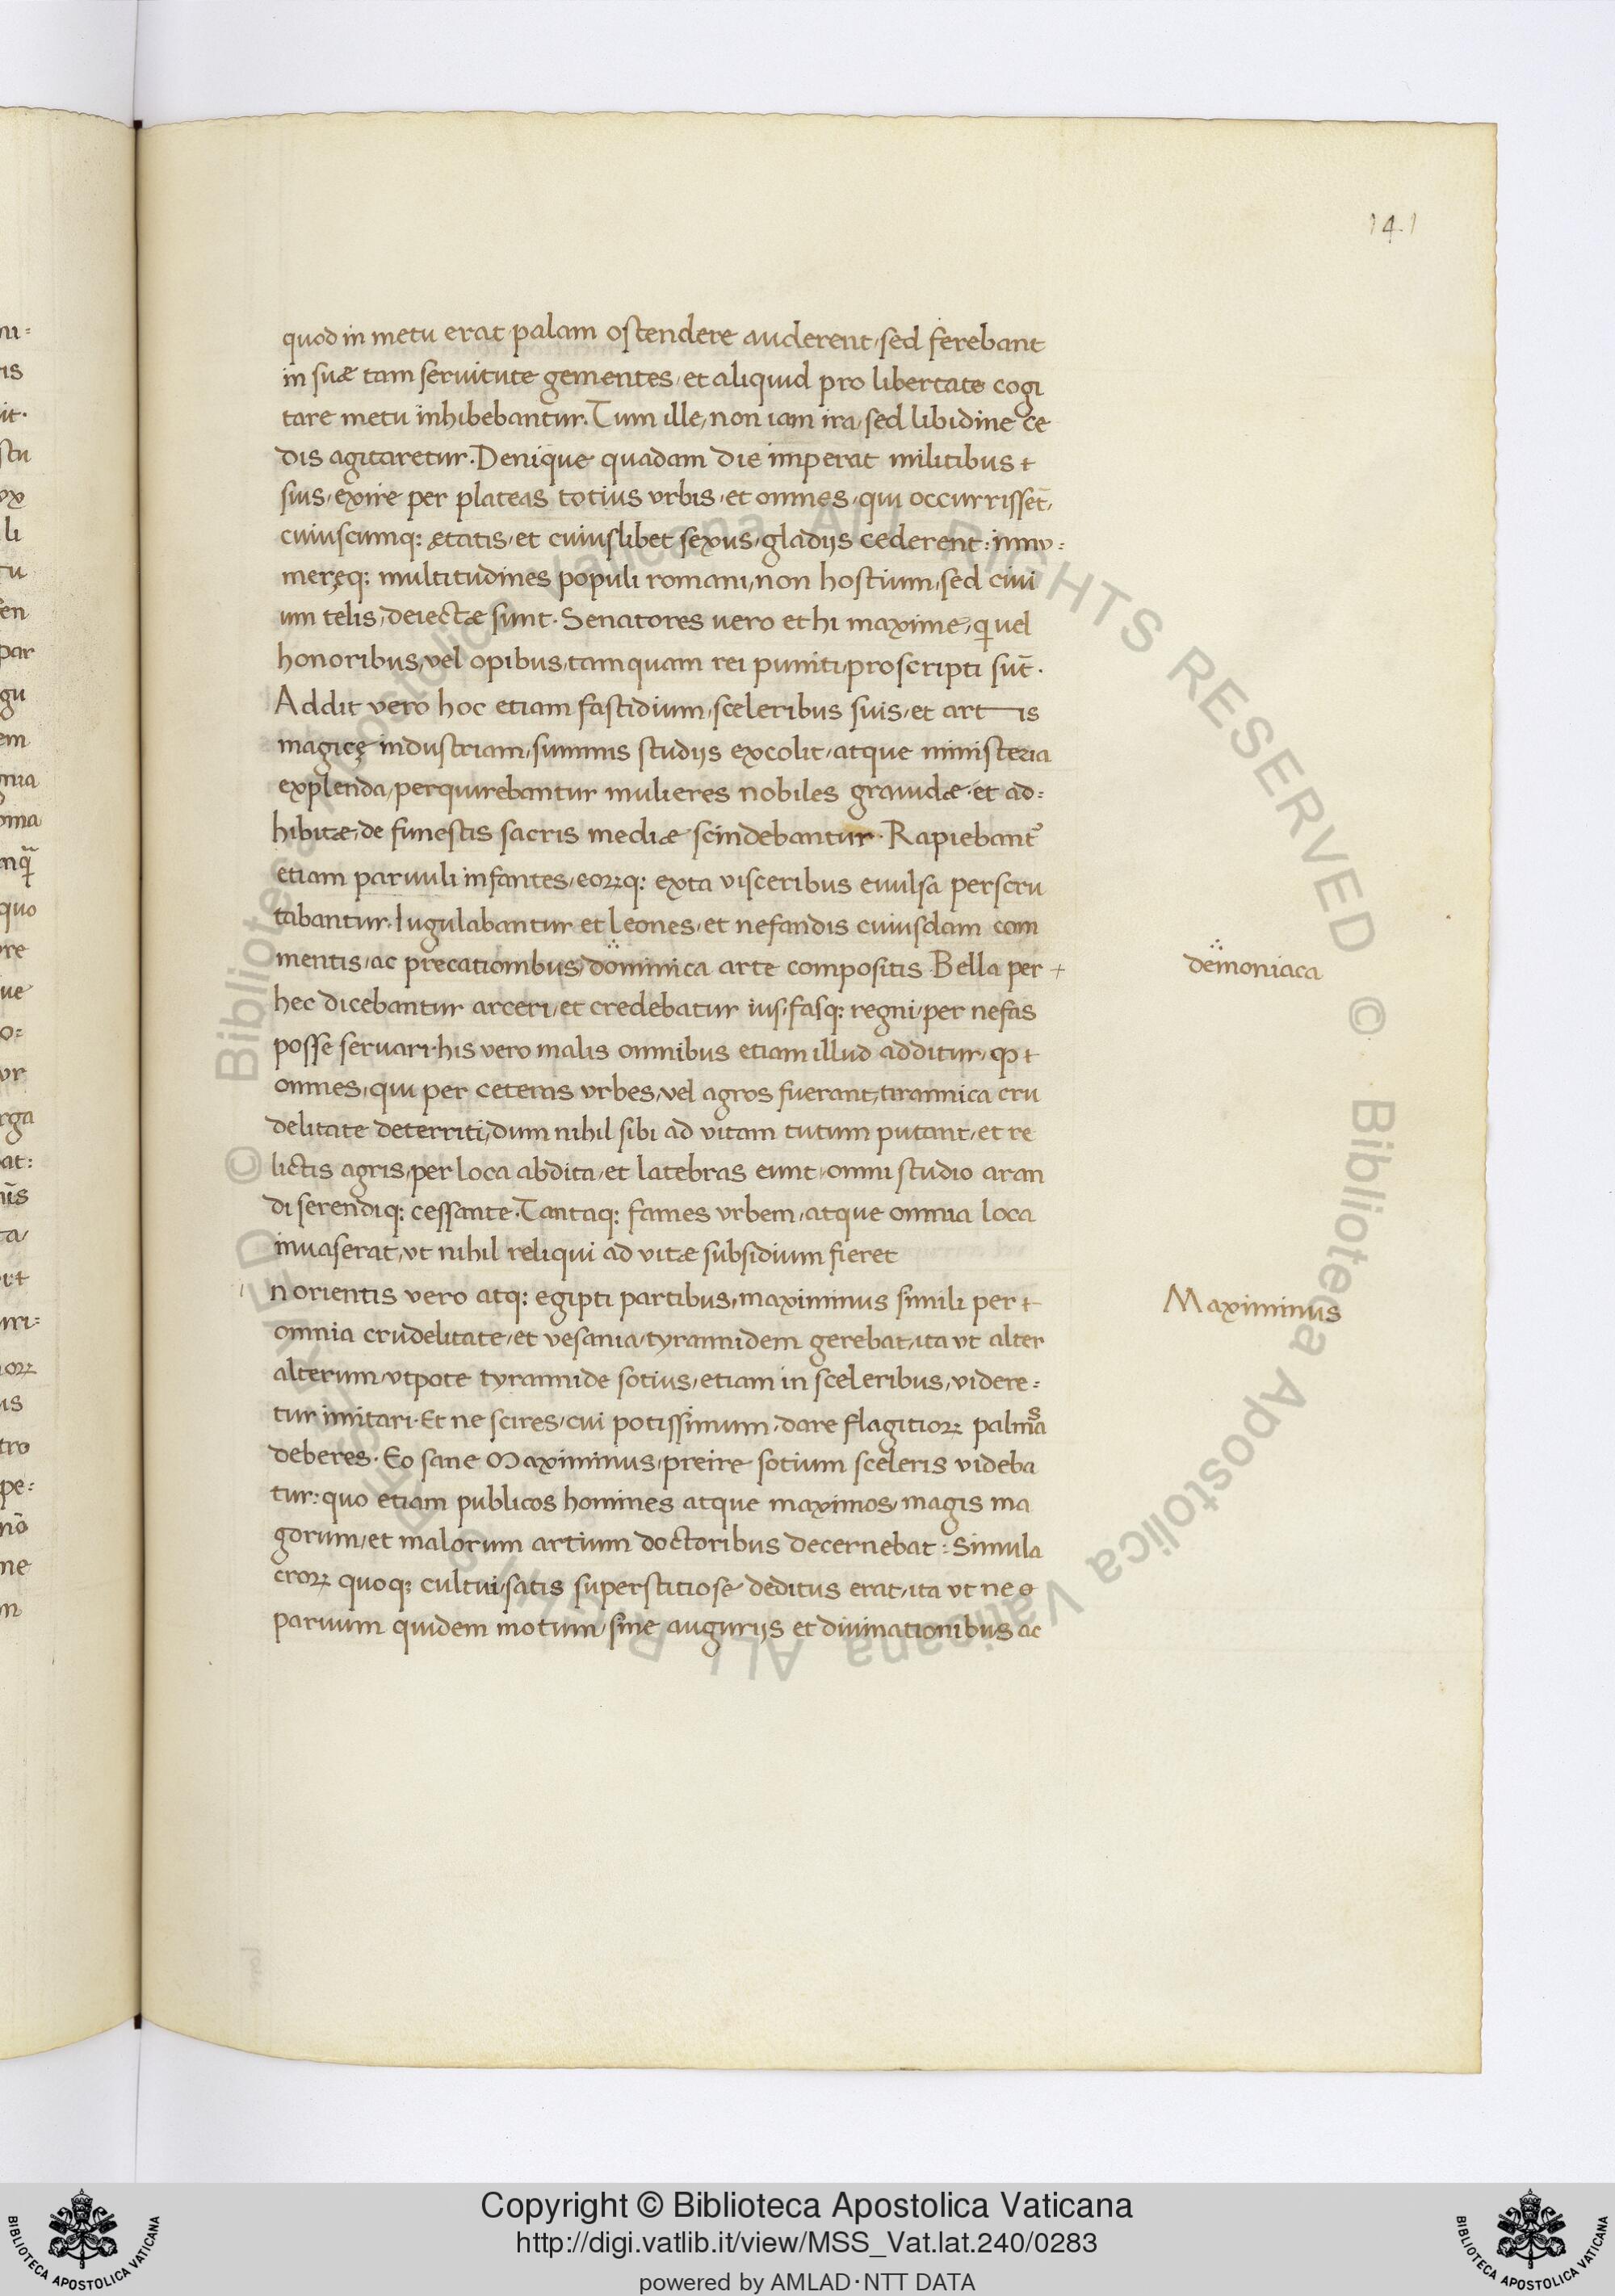 141
quod in metu erat palam ostendere auderent, sed ferebant
in suæ tam seruitute gementes, et aliquid pro libertate cogi
tare metu inhibebantur. Tum ille, non iam ira, sed libidine ce
dis agitaretur. Denique quadam die imperat militibus +
suis, exire per plateas totius vrbis, et omnes, qui occurrissēt,
cuiuscumq: ætatis, et cuiuslibet sexus, gladijs cederent: innu:
meręq: multitudines populi romani, non hostium, sed ciui
um telis, deiectæ sunt. Senatores uero et hi maxime, qi uel
honoribus, vel opibus, tamquam rei puniti, proscripti sūt.
Addit vero hoc etiam fastidium, sceleribus suis, et artis
magicę industriam, summis studijs excolit, atque ministeria
explenda, perquirebantur mulieres nobiles grauidæ, et ad:
hibitæ, de funestis sacris mediæ scindebantur. Rapiebant᷑
etiam paruuli infantes, eoꝝq: exta visceribus euulsa perscru
tabantur. Iugulabantur et leones, et nefandis cuiusdam com
mentis, ac precationibus, dominica arte compositis. Bella per +
demoniaca
hec dicebantur arceri, et credebatur ius, fasq: regni, per nefas
posse seruari. his vero malis omnibus etiam illud additur, ꝙ +
omnes, qui per ceteras vrbes, vel agros fuerant, tirannica cru
delitate deterriti, dum nihil sibi ad vitam tutum putant, et re
lictis agris, per loca abdita, et latebras eunt, omni studio aran
di serendiq: cessante. Tantaq: fames vrbem, atque omnia loca
inuaserat, vt nihil reliqui ad vitæ subsidium fieret
i n orientis vero atq: egipti partibus, maximinus simili per +
Maximinus
omnia crudelitate, et vesania, tyrannidem gerebat, ita vt alter
alterum, vtpote tyrannide sotius, etiam in sceleribus, videre:
tur imitari. Et ne scires, cui potissimum, dare flagitioꝝ palmas
deberes. Eo sane Maximinus, preire sotium sceleris videba
tur: quo etiam publicos homines atque maximos, magis ma
gorum, et malorum artium doctoribus decernebat: Simula
croꝝ quoq: cultui, satis superstitiose deditus erat, ita vt ne
paruum quidem motum, sine augurijs et diuinationibus ac
Copyright © Biblioteca Apostolica Vaticana
http://digi.vatlib.it/view/MSS_Vat.lat.240/0283
powered by AMLAD·NTT DATA
BIBLIOTECA APOSTOLICA VATICANA
BIBLIOTECA APOSTOLICA VATICANA